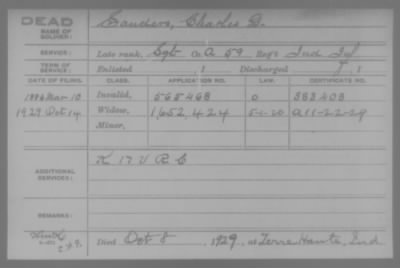 DEAD
NAME OF SOLDIER: Sanders, Charles D.
SERVICE: Late rank, Sgt Co. A 59 Reg't Ind Inf
TERM OF SERVICE: Enlisted , 1 Discharged , 1
DATE OF FILING. CLASS. APPLICATION NO. LAW. CERTIFICATE NO.
1886 Mar 10 Invalid, 565468 0 383403
1929 Oct 14 Widow, 1,652,424 5-1-20 a 11-22-29
Minor,
ADDITIONAL SERVICES: K 17 V R C
REMARKS:
Died Oct 8, 1929, at Terre Haute, Ind